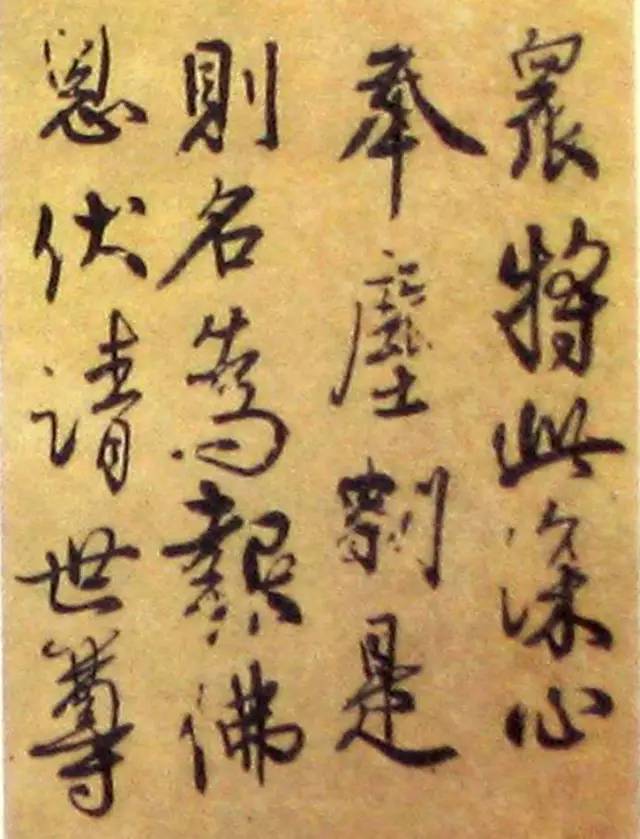 眾將此深心
奉塵剎是
則名為報佛
恩伏請世尊